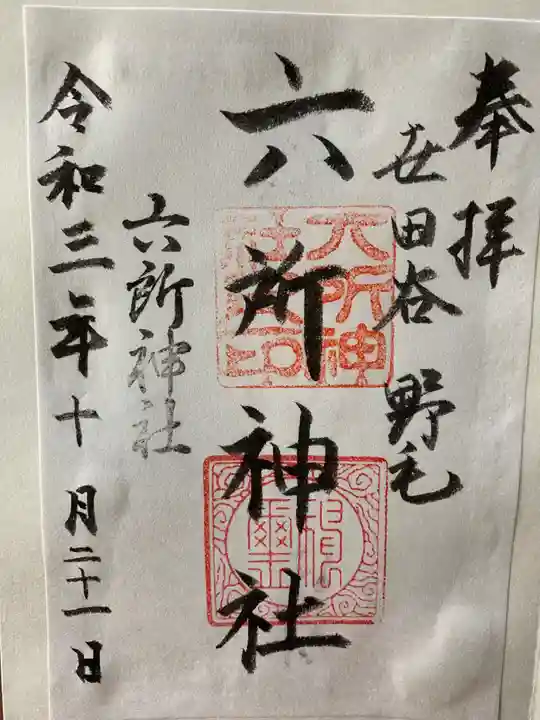 奉拝
世田谷 野毛
六所神社
六所神
社之印
六所神社
令和三年十月二十一日